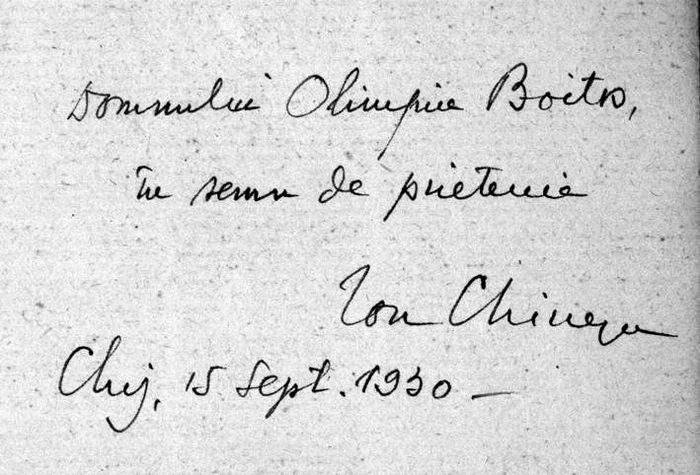 Domnului Olimpiu Boitoș,
în semn de prietenie
Ion Chinezu
Cluj, 15 Sept. 1930 —